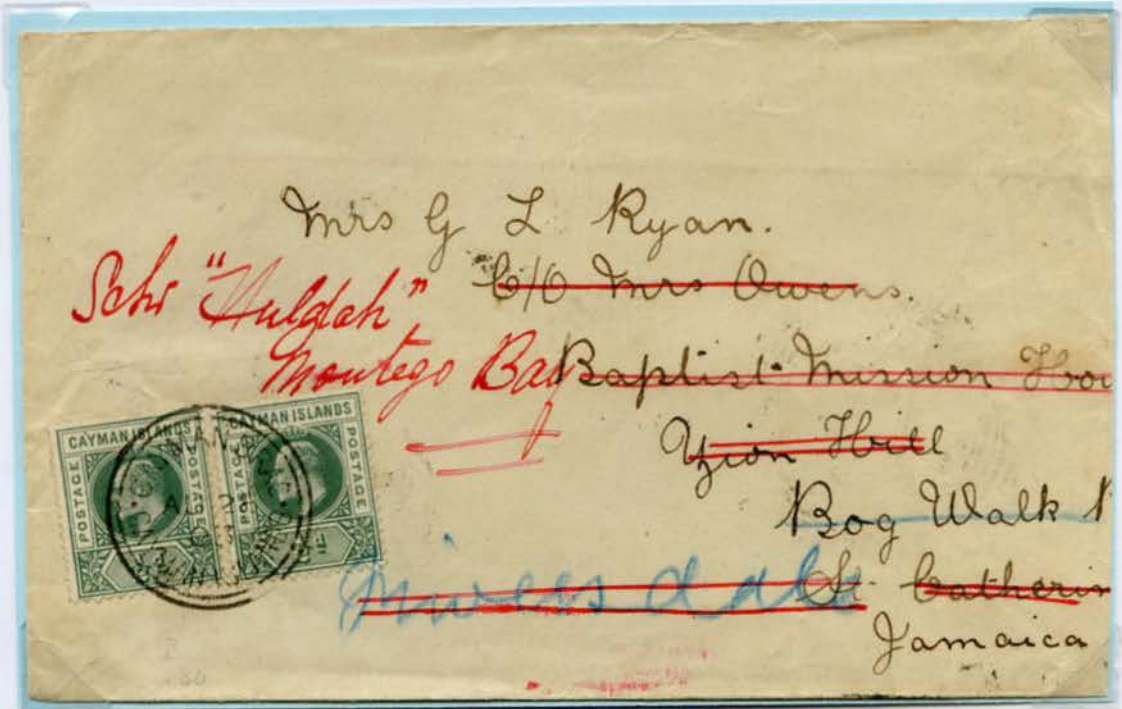 Mrs G L Ryan.
C/O Mrs Owens.
Schr "Huldah"
Montego Bay
Baptist Mission
Zion Hill
Bog Walk
St Catherin
Jamaica
CAYMAN ISLANDS
POSTAGE
POSTAGE
CAYMAN ISLANDS
POSTAGE
POSTAGE